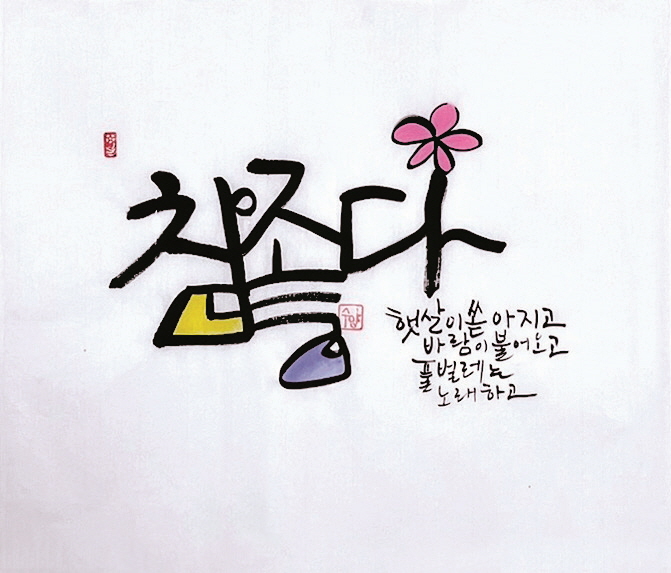 참좋다
햇살이 쏟아지고
바람이 불어오고
풀벌레는
노래하고